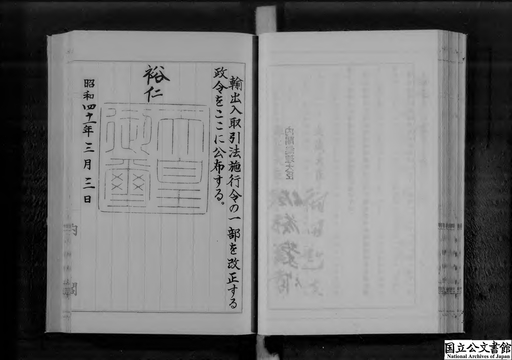 輸出入取引法施行令の一部を改正する
政令をここに公布する。
裕仁
天皇
御璽
昭和四十一年三月三日
内閣
国立公文書館
National Archives of Japan